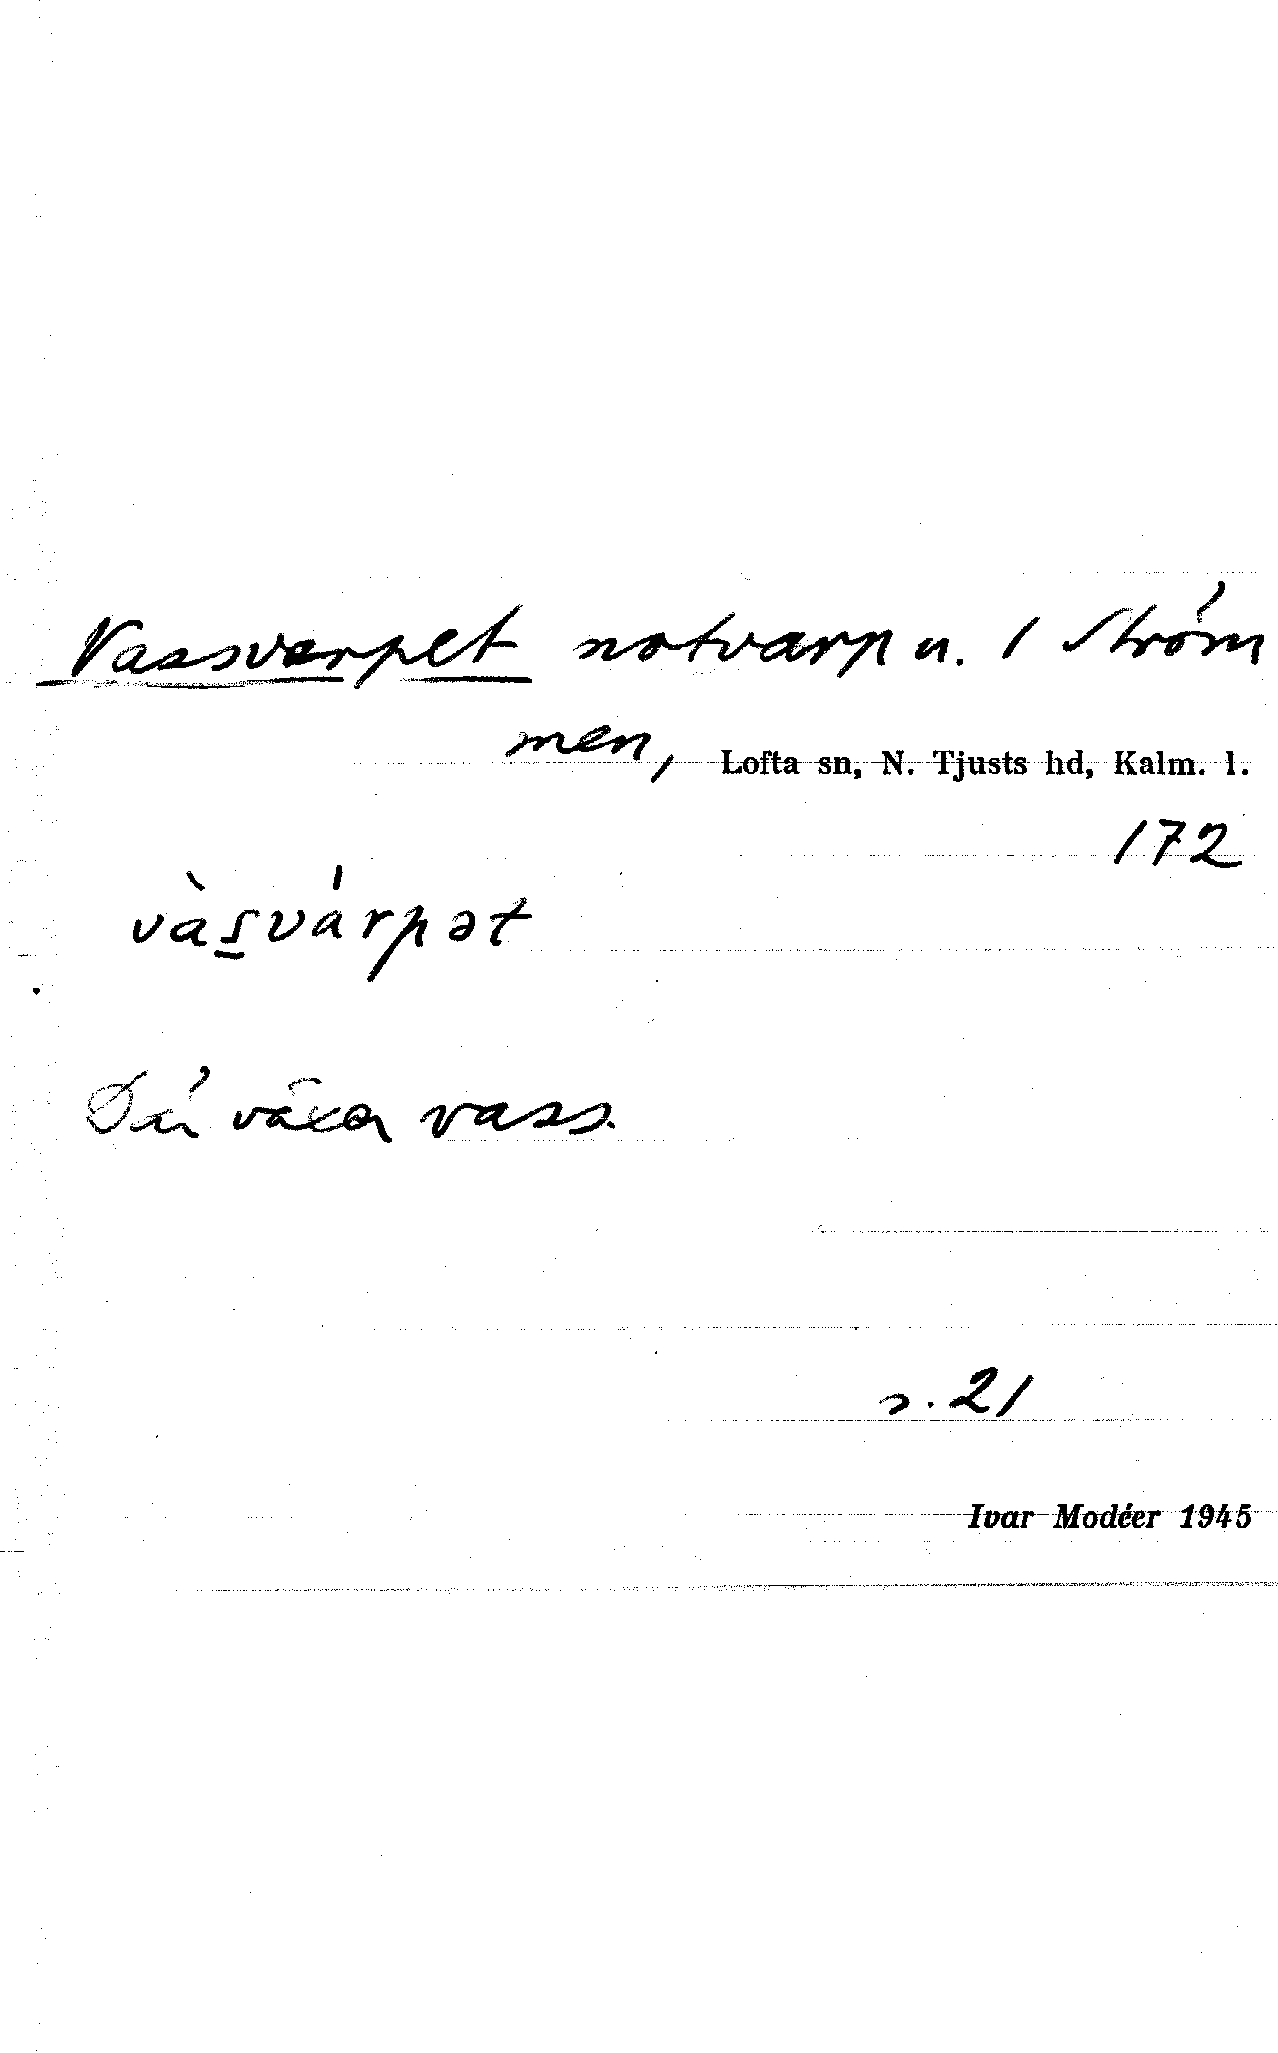 Vassvarpet notvarp n. 1 Ström
men, Lofta sn, N. Tjusts hd, Kalm. l.
172
vàs̲várpət
Där växer vass.
s. 21
Ivar Modéer 1945